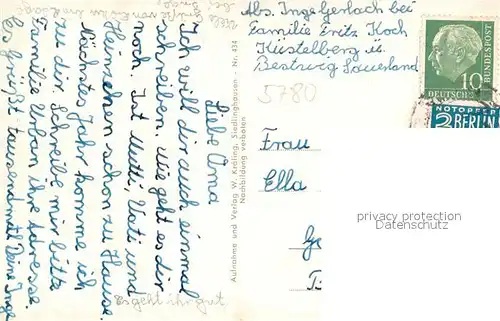 Liebe Oma
Ich will dir auch einmal
schreiben. Wie geht es dir
noch. Ist Mutti, Vati und
Heinzchen schon zu Hause.
Nächstes Jahr komme ich
zu dir. Schreibe mir bitte
Familie Urban ihre Adresse.
Es grüßt tausendmal Deine Inge
es geht ihr gut
Aufnahme und Verlag W. Kröling, Siedlinghausen - Nr. 434
Nachbildung verboten
Abs. Inge Gerlach bei
Familie Fritz Koch
Küstelberg ü.
Bestwig Sauerland
5780
Frau
Ella
DEUTSCHE BUNDESPOST
10
NOTOPFER
2 BERLIN
privacy protection
Datenschutz